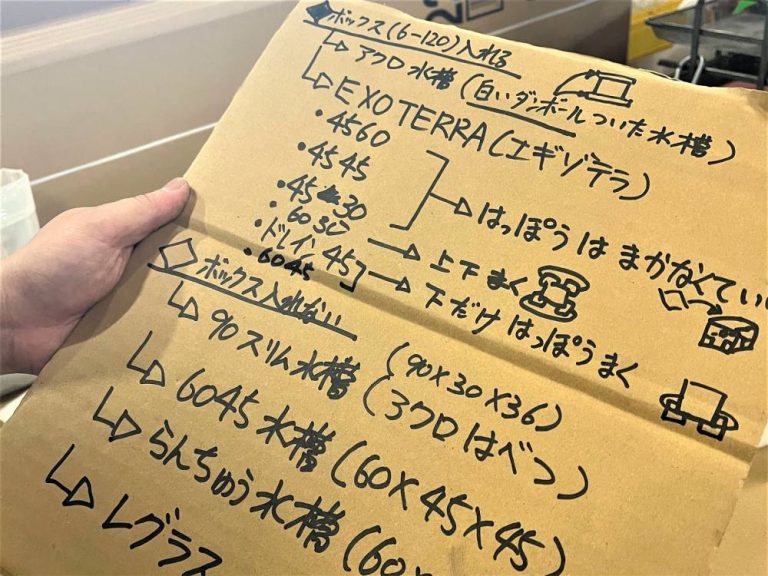 ◆ボックス(6-120)入れる
↳アクロ水槽(白いダンボールついた水槽)
↳EXOTERRA(エギゾテラ)
・4560
・4545
・4530
→はっぽうはまかなくてい
・6030→上下まく
・ドレイン45
・6045
→下だけはっぽうまく
◇ボックス入れない
↳90スリム水槽(90×30×36)
(アクロはべつ)
↳6045水槽(60×45×45)
↳らんちゅう水槽(60×
↳Lグラス